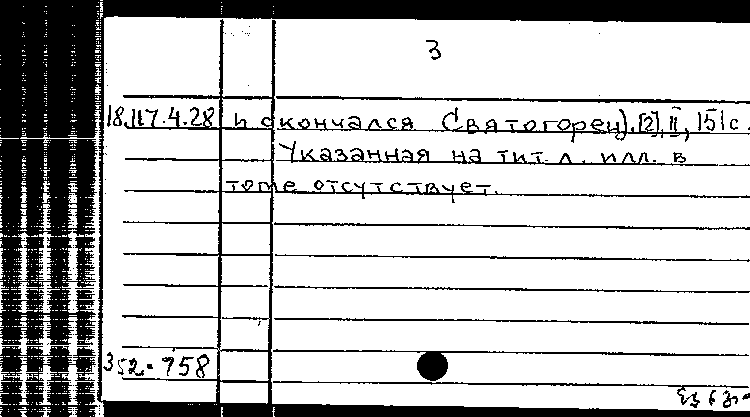 3
18.117.4.28 и скончался Святогорец). [2], II, 151 с.
Указанная на тит. л. илл. в
томе отсутствует.
352-758